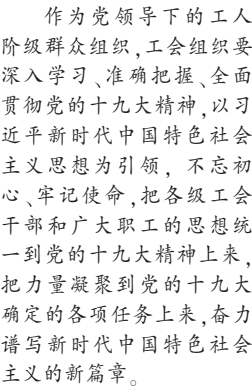 作为党领导下的工人
阶级群众组织,工会组织要
深入学习、准确把握、全面
贯彻党的十九大精神,以习
近平新时代中国特色社会
主义思想为引领，不忘初
心、牢记使命,把各级工会
干部和广大职工的思想统
一到党的十九大精神上来,
把力量凝聚到党的十九大
确定的各项任务上来,奋力
谱写新时代中国特色社会
主义的新篇章。